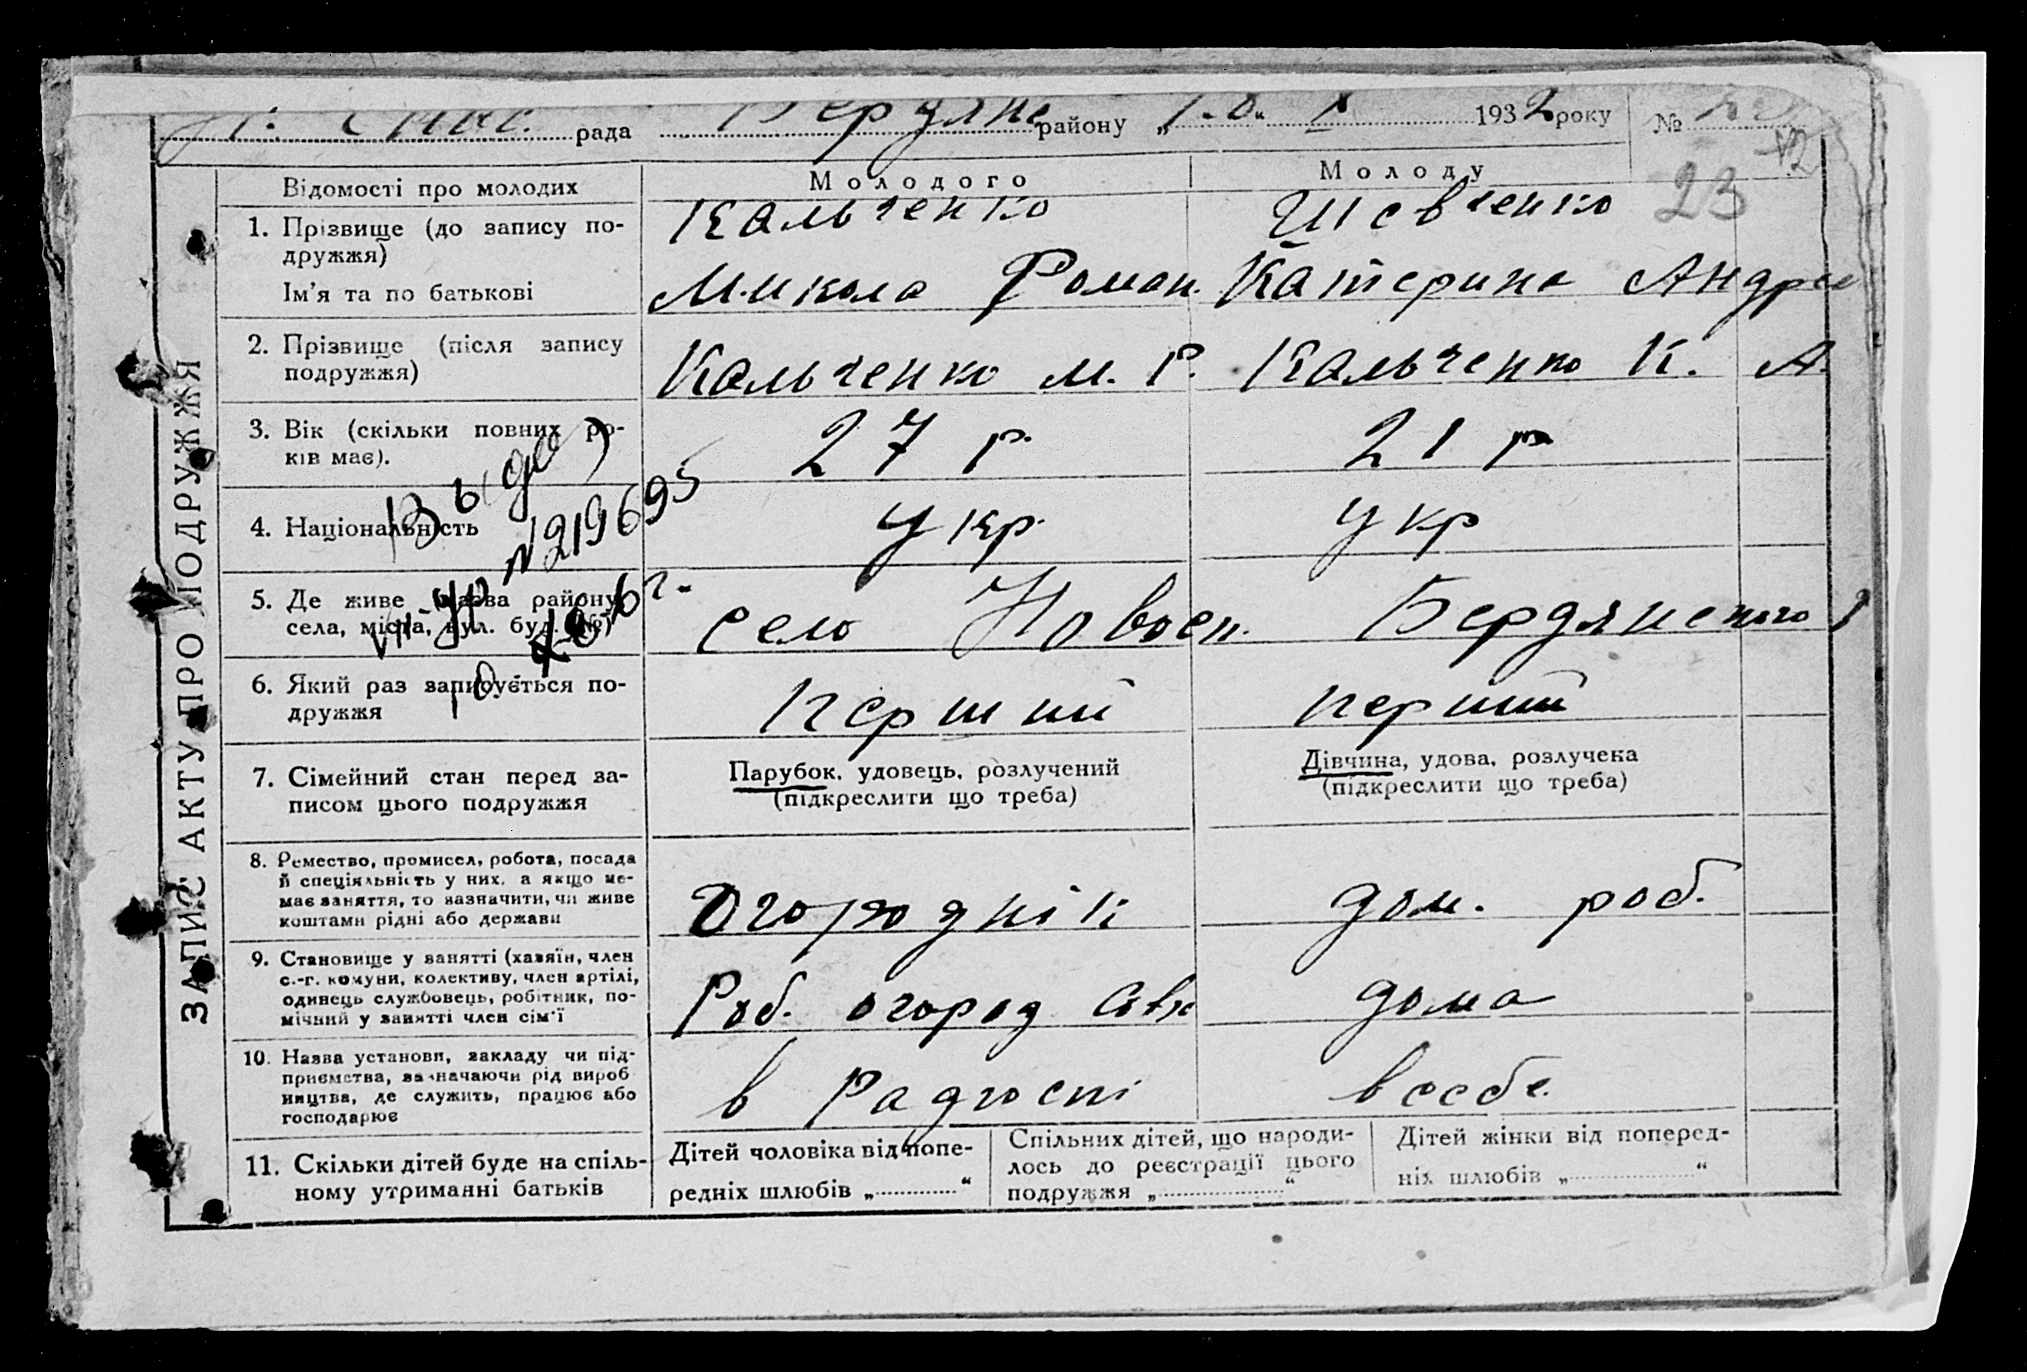 рада Бердянс району „ “ X 1932 року №
23
ЗАПИС АКТУ ПРО ПОДРУЖЖЯ
Відомості про молодих Молодого Молоду
1. Прізвище (до запису по-
дружжя) Кальченко Шевченко
Ім'я та по батькові Микола Роман. Катерина Андре
2. Прізвище (після запису
подружжя) Кальченко М. Р. Кальченко К. А.
3. Вік (скільки повних ро-
ків має). 27 р. 21 р
4. Національність укр. укр
Выдано
№219695
5. Де живе назва району,
села, міста, вул. буд. №) село Новосп. Бердянского р
6. Який раз записується по-
дружжя Перший перший
7. Сімейний стан перед за-
писом цього подружжя
Парубок, удовець, розлучений
(підкреслити що треба)
Дівчина, удова, розлучека
(підкреслити що треба)
8. Ремество, промисел, робота, посада
й спеціяльність у них, а якщо не-
має заняття, то зазначити, чи живе
коштами рідні або держави
Огороднік дом. роб.
9. Становище у занятті (хазяїн, член
с.-г. комуни, колективу, член артілі,
одинець службовець, робітник, по-
мічний у занятті член сім'ї
Роб. огород дома
10. Назва установи, закладу чи під-
приємства, зазначаючи рід вироб
ництва, де служить, працює або
господарює
в Радгоспі в себе.
11. Скільки дітей буде на спіль-
ному утриманні батьків
Дітей чоловіка від попе-
редніх шлюбів „ “
Спільних дітей, що народи-
лось до реєстрації цього
подружжя „ “
Дітей жінки від поперед-
ніх шлюбів „ “